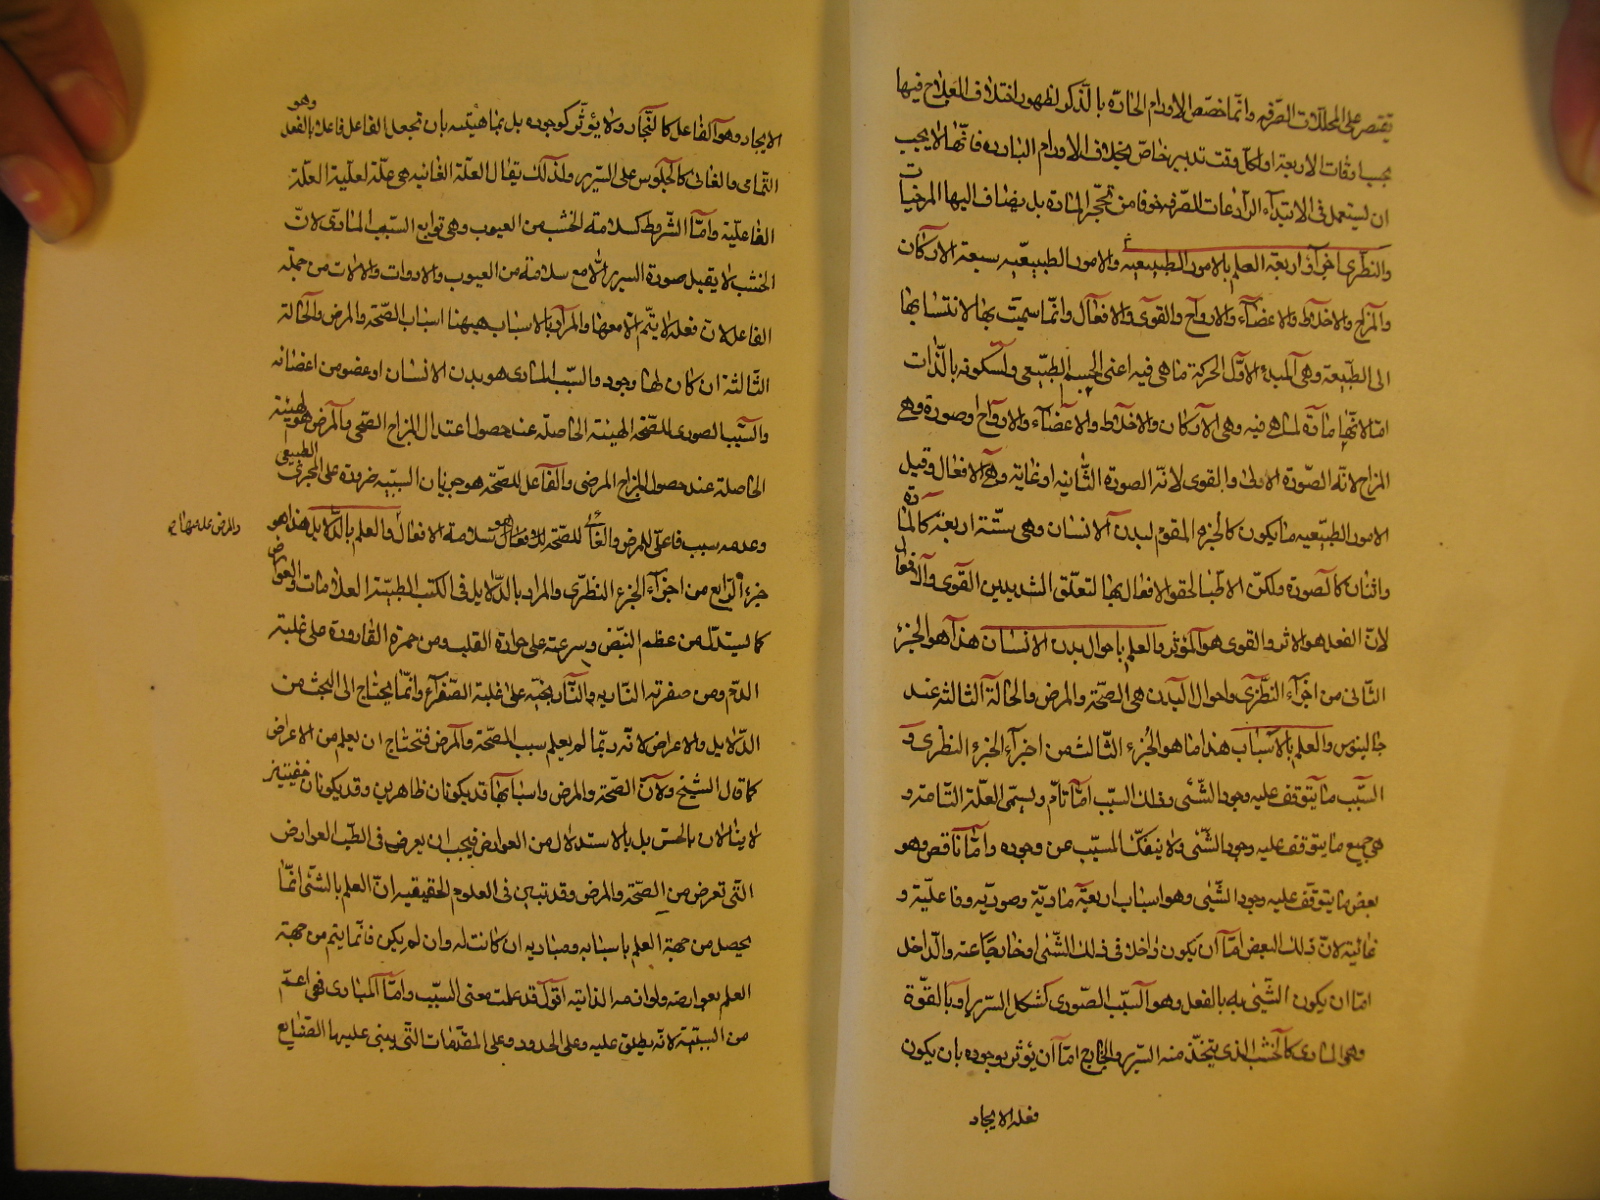 يقتصر على المحللات الصرفه وانما خصّص الاورام الحارّة بالذكر لظهور اختلاف العلاج فيها
بحسب اوقات الاربعة اولكل وقت تدبير خاصّ بخلاف الاورام الباردة فانّها لا يجب
ان يستعمل فى الابتدآء الرادعات الصرفه خوفا من تحجّر المادّة بل يضاف اليها المرخيات
والنظرى اجزآؤه اربعة العلم بالامور الطبيعيه والامور الطبيعيّه سبعة الاركان
والمزاج والاخلاط والاعضآء والارواح والقوى والافعال وانّما سميت بها لانتسابها
الى الطبيعة وهى المبدء الاوّل لحركة ما هى فيه اعنى الجسم الطبيعى ولسكونه بالذّات
امّا لانّها مادّة لما هى فيه وهى الاركان والاخلاط والاعضآء والارواح او صورة وهى
المزاج لانه الصّورة الاولى والقوى لانه الصورة الثانيه او غاية وهى الافعال وقيل
الامور الطبّيعيه ما يكون كالجزء المقوّم لبدن الانسان وهى ستّة اربعة كالمادّة
واثنان كالصورة ولكنّ الاطبّا لحقوا الافعال بها لتعلّق الشديد بين القوى والافعال
لانّ الفعل هو الاثر والقوى هو المؤثر والعلم باحوال بدن الانسان هذا هو الجزء
الثانى من اجزآء النظرى واحوال البدن هى الصّحة والمرض والحالة الثالثة عند
جالينوس والعلم بالاسباب هذا ما هو الجزء الثالث من اجزآء الجزء النظرى و
السّبب ما يتوقف عليه وجود الشّئى وذلك السّبب امّا تامّ ويسمّى العلّة التامة و
هى جميع ما يتوقف عليه وجود الشّئى ولا ينفكّ المسبّب عن وجوده وامّا ناقص وهو
بعض ما يتوقف عليه وجود الشّئى وهو اسباب اربعة ماديّة وصوريّه وفاعليّة و
غائيّة لانّ ذلك البعض امّا ان يكون داخلا فى ذلك الشّئى او خارجًا عنه والدّاخل
امّا ان يكون الشّئى به بالفعل وهو السّبب الصّورى كشكل السرير او بالقوّة
وهو المادى كالخشب الذى يتخذ منه السّرير والخارج امّا ان يؤثر بوجوده بان يكون
فعله الايجاد
الايجاد وهو الفاعل كالنجّار ولا يؤثر كوجوده بل بماهيّته بان تجعل الفاعل فاعلا بالفعل وهو
التمامى والغائى كالجلوس على السّرير ولذلك يقال العلّة الغائيه هى علّة لعلية العلّة
الفاعليّة وامّا الشّروط كسلامة الخشب من العيوب وهى توابع السّبب المادّى لانّ
الخشب لا يقبل صورة السرير الّا مع سلامته من العيوب والادوات والالات من جملة
الفاعل لانّ فعله لا يتّم الّا معها والمراد بالاسباب هيهنا اسباب الصّحة والمرض والحالة
الثّالثة ان كان لها وجود والسّبب المادى هو بدن الانسان او عضو من اعضائه
والسّبب الصورى للصّحة الهيئة الحاصلة عند حصول اعتدال المزاج الصّحى والمرض هو الهيئة
الحاصلة عند حصول المزاج المرضى والفاعل للصّحة هو جريان السببّيه ضرورة على المجرى الطبيعى
وعدمه سبب فاعلى للمرض والغائى للصّحة هو سلامة الافعال والعلم بالدّلايل هذا هو
والمرض عدمها صح
جزء الرّابع من اجزآء الجزء النّظرى والمراد بالدّلايل فى الكتب الطبيّة العلامات والعوارض
كما يستدل من عظم النبض وسرعته على حرارة القلب ومن حمرة القارورة على غلبة
الدّم ومن صفرته الناريه والنّارنجيّه على غلبة الصّفرآء وانّما يحتاج الى البحث من
الدّلايل والاعراض لانّه ربّما لم يعلم سبب الصّحة والمرض فتحتاج ان يعلم من الاعراض
كما قال الشيخ ولانّ الصّحة والمرض واسبابها قد يكونان ظاهرين وقد يكونان خفيّين
لا ينالان بالحسّ بل بالاستدلال من العوارض فيجب ان يعرض فى الطّب العوارض
التّى تعرض من الصّحة والمرض وقد تبين فى العلوم الحقيقيه انّ العلم بالشّئى انّما
يحصل من جهة العلم باسبابه ومباديه ان كانت له وان لم يكن فانّما يتم من جهة
العلم بعوارضه ولوازمه الذاتيه اقول قد علمت معنى السّبب وامّا المبادى فهى اعمّ
من السببيّة لانّه يطلق عليه وعلى الحدود وعلى المقدّمات التّى يبنى عليها الصّنايع